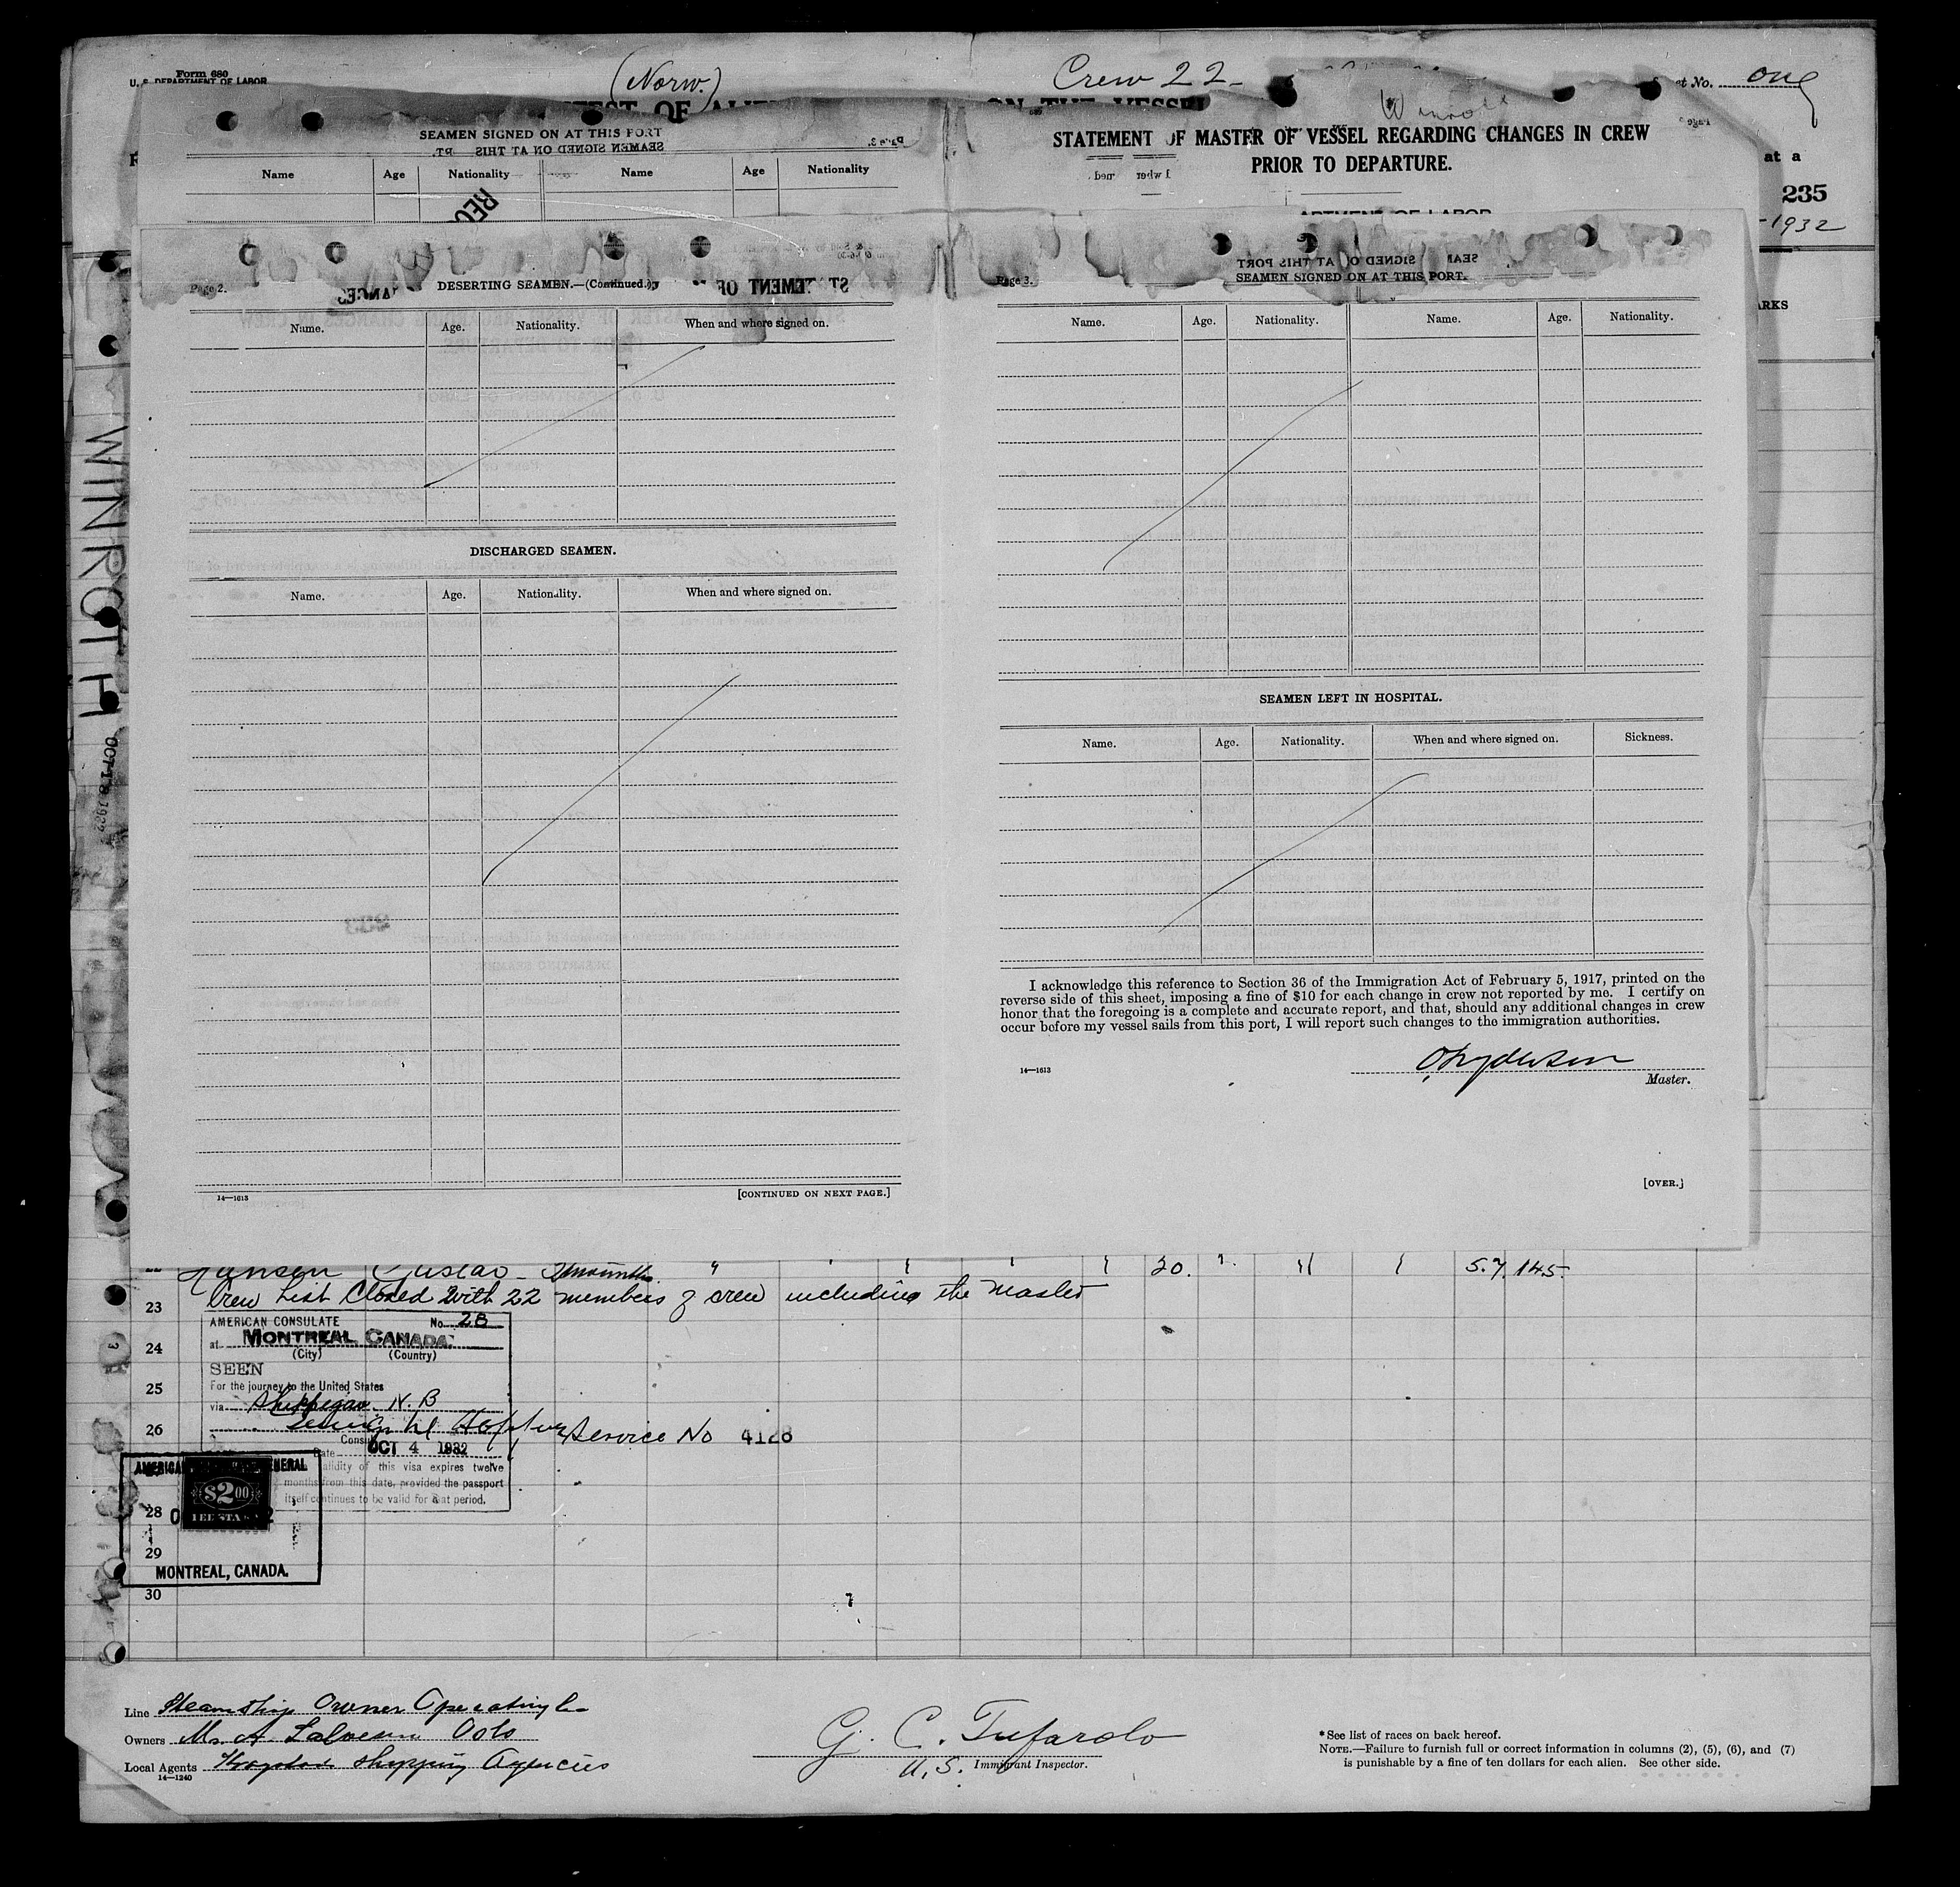 Form 680
U. S. DEPARTMENT OF LABOR
(Norw.)
Crew 22-
Sheet No. one
SEAMEN SIGNED ON AT THIS PORT
Name Age Nationality Name Age Nationality
STATEMENT OF MASTER OF VESSEL REGARDING CHANGES IN CREW
PRIOR TO DEPARTURE.
at a
235
1932
Page 2.
DESERTING SEAMEN.—(Continued.)
Name. Age. Nationality. When and where signed on.
DISCHARGED SEAMEN.
Name. Age. Nationality. When and where signed on.
14—1613
[CONTINUED ON NEXT PAGE.]
Page 3.
SEAMEN SIGNED ON AT THIS PORT.
Name. Age. Nationality. Name. Age. Nationality.
SEAMEN LEFT IN HOSPITAL.
Name. Age. Nationality. When and where signed on. Sickness.
I acknowledge this reference to Section 36 of the Immigration Act of February 5, 1917, printed on the
reverse side of this sheet, imposing a fine of $10 for each change in crew not reported by me. I certify on
honor that the foregoing is a complete and accurate report, and that, should any additional changes in crew
occur before my vessel sails from this port, I will report such changes to the immigration authorities.
14—1613
Master.
[OVER.]
WINROTH
OCT 18 1932
Hansen Gustav 2 months " 20. 5.7. 145.
23 Crew List Closed with 22 members of crew including the Master
24
25
26
28
29
30
AMERICAN CONSULATE No. 28
at MONTREAL CANADA
(City) (Country)
SEEN
For the journey to the United States
via Shippegan N. B
Service No 4128
Consul
Date OCT 4 1932
validity of this visa expires twelve
months from this date, provided the passport
itself continues to be valid for that period.
$2.00
FEE STA
MONTREAL, CANADA.
Line Steamship Owner Operating Co
Owners Mr. A. Salvesen Oslo
Local Agents Shipping Agencies
14—1240
G. C. Tufarolo
U.S. Immigrant Inspector.
* See list of races on back hereof.
NOTE.—Failure to furnish full or correct information in columns (2), (5), (6), and (7)
is punishable by a fine of ten dollars for each alien. See other side.